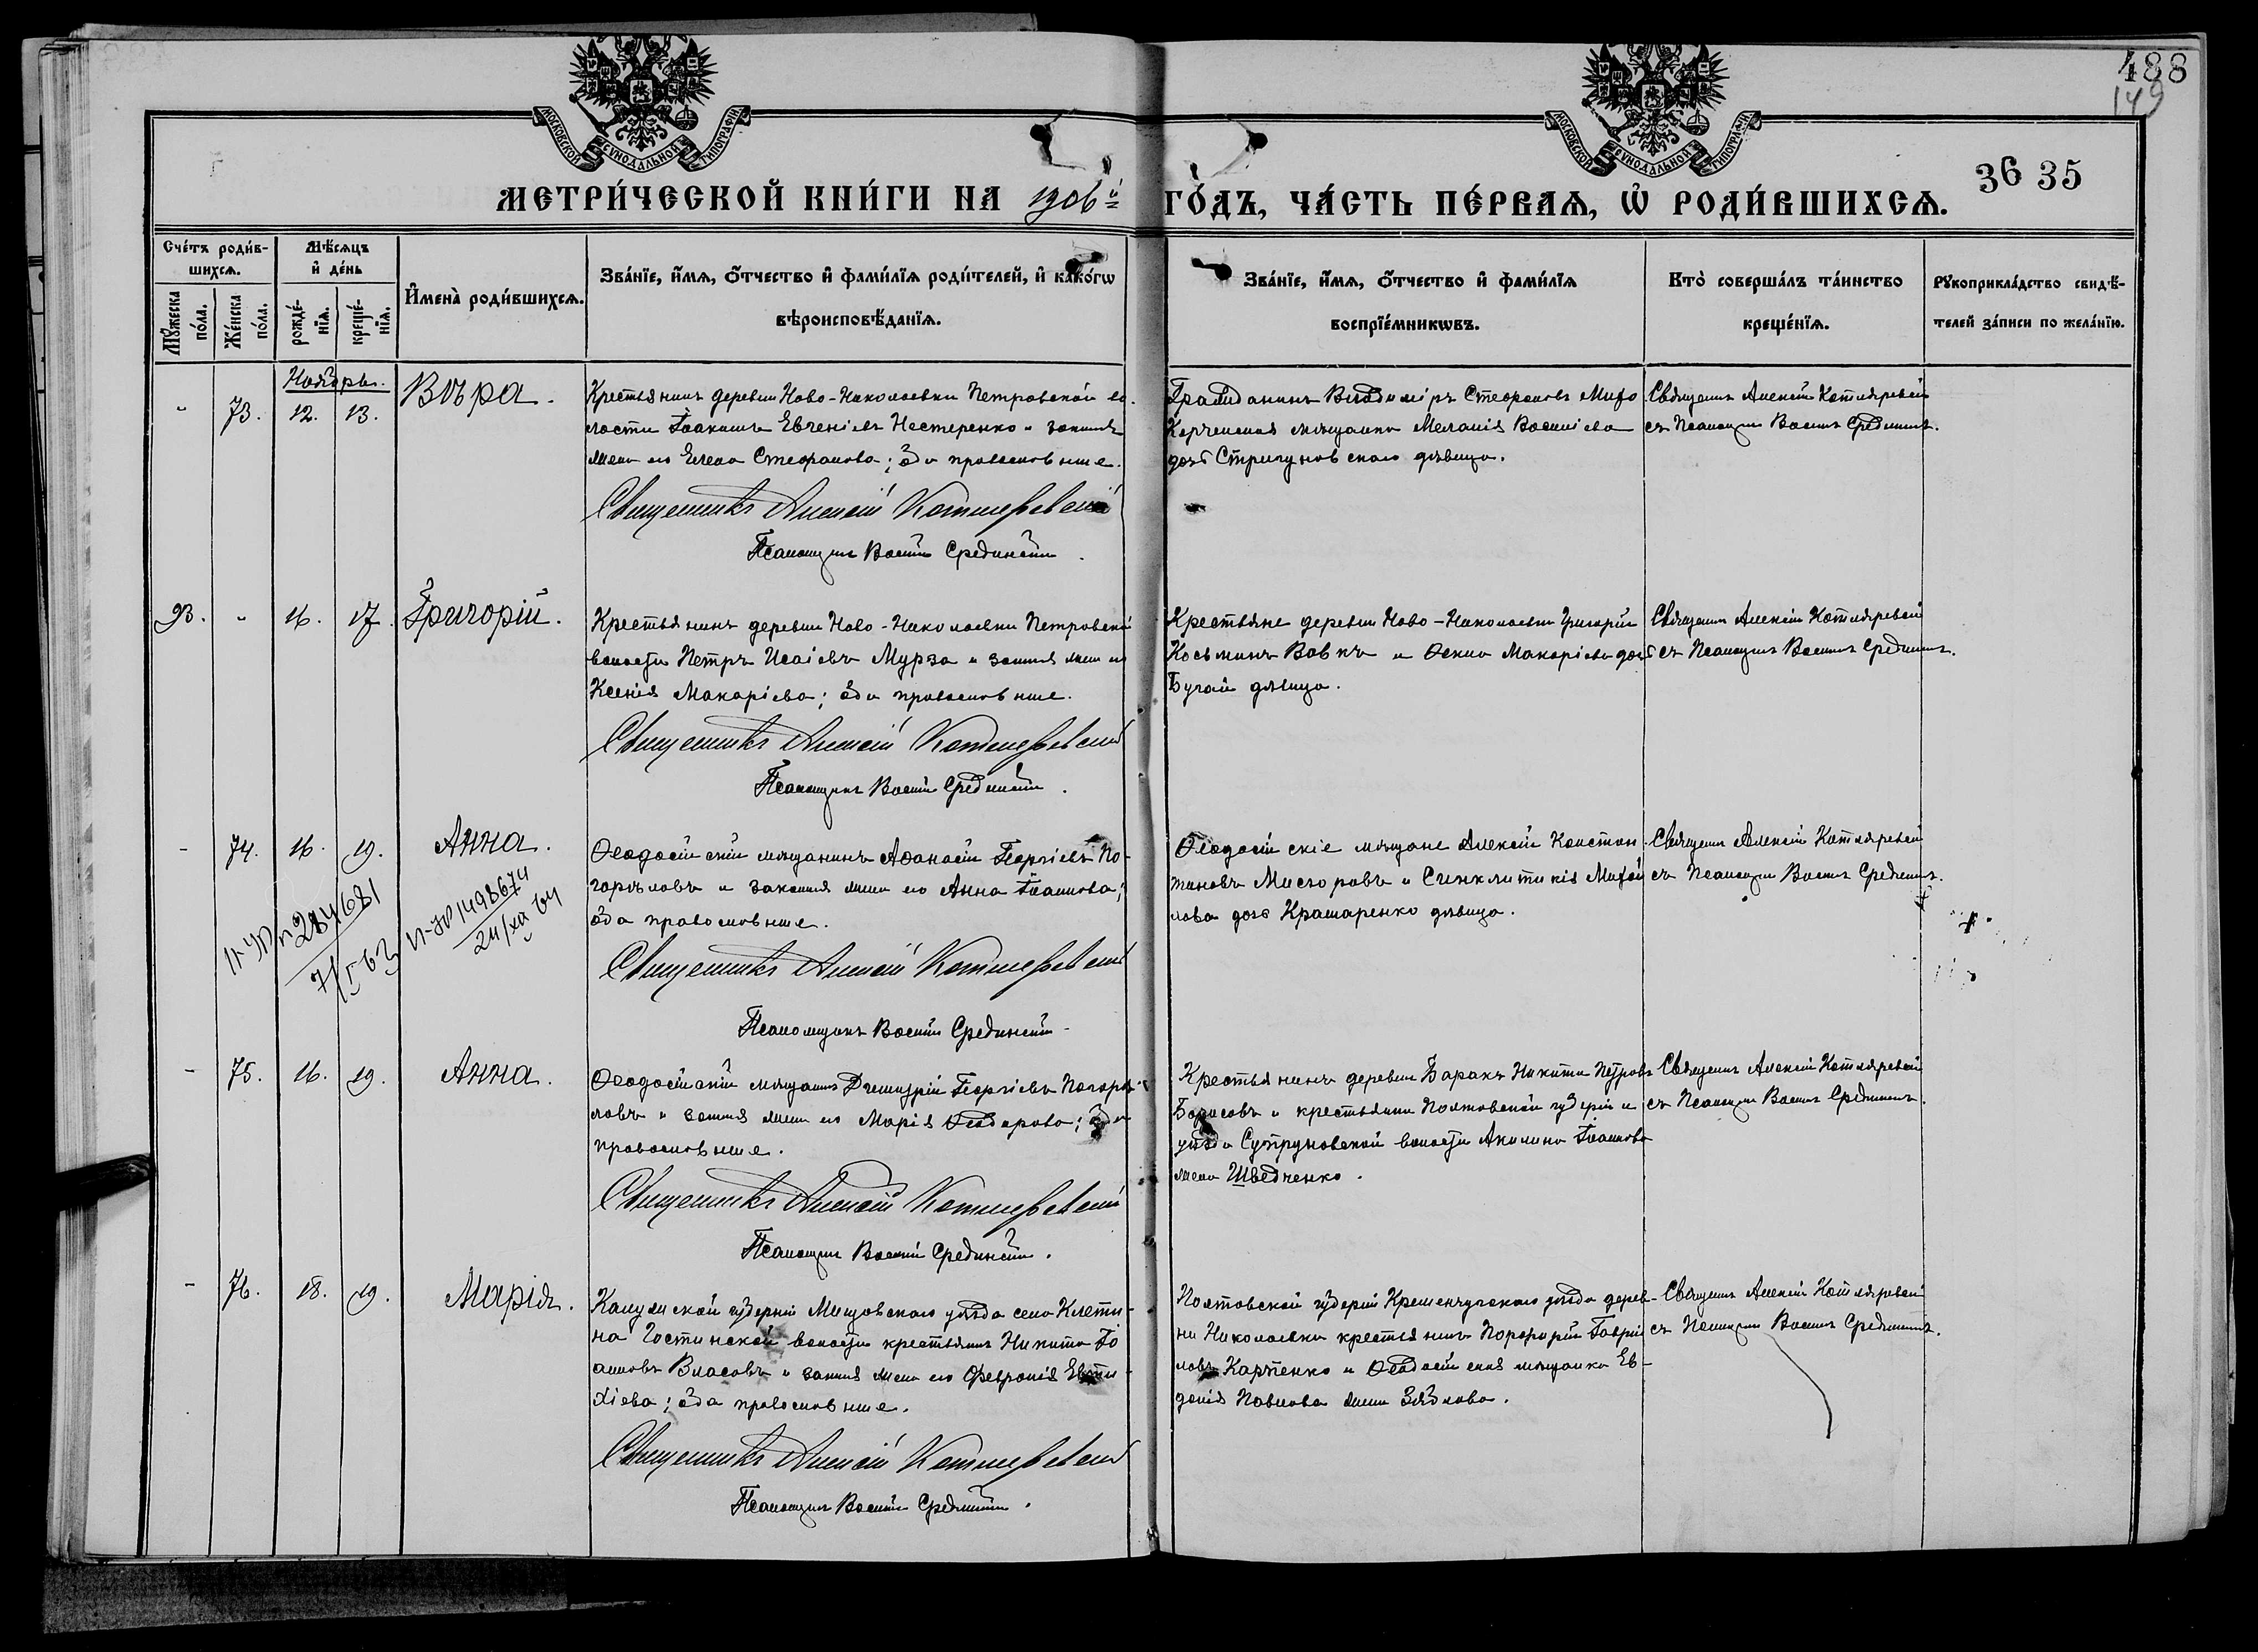 488
149
МОСКОВСКОЙ СѴНОДАЛЬНОЙ ТИПОГРАФІИ
МОСКОВСКОЙ СѴНОДАЛЬНОЙ ТИПОГРАФІИ
36 35
МЕТРИ́ЧЕСКОЙ КНИ́ГИ НА 1906й ГО́ДЪ, ЧА́СТЬ ПЕ́РВАѦ, Ѡ҆ РОДИ́ВШИХСѦ.
Сче́тъ роди́в-
шихсѧ.
Мѣ́сѧцъ
и҆ де́нь
Мꙋ́жеска
по́ла.
Же́нска
по́ла.
рожде́-
нїѧ.
креще́-
нїѧ.
И҆мена̀ роди́вшихсѧ.
Зва́нїе, и҆́мѧ, ѻ҆́тчество и҆ фами́лїѧ роди́телей, и҆ како́гѡ
вѣроисповѣ́данїѧ.
Зва́нїе, и҆́мѧ, ѻ҆́тчество и҆ фами́лїѧ
воспрїе́мникѡвъ.
Кто̀ соверша́лъ та́инство
креще́нїѧ.
Рꙋкоприкла́дство свидѣ́-
телей за́писи по жела́нїю.
Ноябрь.
- 73. 12. 13. Вѣра.
Крестьянинъ деревни Ново-Николаевки Петровской во-
лости Іоакимъ Евгеніевъ Нестеренко и законная
жена его Елена Стефанова; оба православные.
Священникъ Алексій Котляревскій
Псаломщикъ Василій Срединскій.
Гражданинъ Владиміръ Стефановъ
Керченская мѣщанка Меланія Василіева
дочь Стригуновскаго дѣвица.
Священникъ Алексій Котляревскій
съ Псаломщик. Василіемъ Срединскимъ.
93. - 16. 17. Григорій.
Крестьянинъ деревни Ново-Николаевки Петровской
волости Петръ Исаіевъ Мурза и законная жена его
Ксенія Макаріева; оба православные.
Священникъ Алексій Котляревскій
Псаломщикъ Василій Срединскій.
Крестьяне деревни Ново-Николаевки Григорій
Косьминъ Вовкъ и Макаріева дочь
Бугай дѣвица.
Священникъ Алексій Котляревскій
съ Псаломщик. Василіемъ Срединскимъ.
- 74. 16. 19. Анна.
Ѳеодосійскій мѣщанинъ Аѳанасій Георгіевъ По-
горѣловъ и законная жена его Анна Іоаннова;
оба православные.
Священникъ Алексій Котляревскій
Псаломщикъ Василій Срединскій
Ѳеодосійскіе мѣщане Алексій Констан-
тиновъ и Синклитикія Михаи-
лова дочь Крамаренко дѣвица.
Священникъ Алексій Котляревскій
съ Псаломщик. Василіемъ Срединскимъ.
1498674
24/XII 64
- 75. 16. 19. Анна.
Ѳеодосійскій мѣщанинъ Димитрій Георгіевъ Погорѣ-
ловъ и законная жена его Марія Ѳеодорова; оба
православные.
Священникъ Алексій Котляревскій
Псаломщикъ Василій Срединскій.
Крестьянинъ деревни Баракъ Никита Петровъ
Борисовъ и крестьянка Полтавской губерніи и
уѣзда Супруновской волости Акилина Іоаннова
жена Шведченко.
Священникъ Алексій Котляревскій
съ Псаломщик. Василіемъ Срединскимъ.
- 76. 18. 19. Марія.
Калужской губерніи Мещовскаго уѣзда села Клети-
на Гостинской волости крестьянинъ Никита Іо-
анновъ Власовъ и законная жена его Февронія Евти-
хіева; оба православные.
Священникъ Алексій Котляревскій
Псаломщикъ Василій Срединскій.
Полтавской губерніи Кременчугскаго уѣзда дерев-
ни Николаевки крестьянинъ Порфирій Гаврі-
ловъ Карпенко и Ѳеодосійская мѣщанка Ев-
докія Павлова жена Зяблова.
Священникъ Алексій Котляревскій
съ Псаломщик. Василіемъ Срединскимъ.